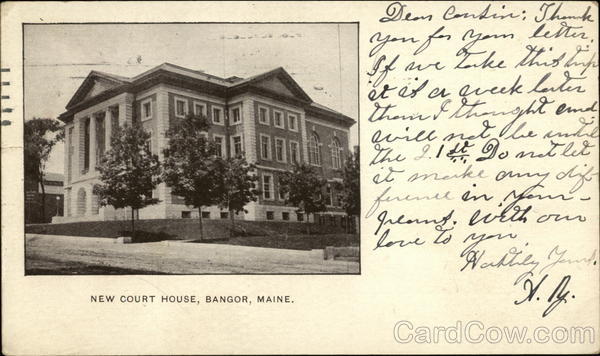 Dear Cousin: Thank
you for your letter.
If we take this trip
it is a week later
than I thought and
will not be until
the 21st. Do not let
it make any dif-
ference in your
plans. With our
love to you
Heartily Yours,
H.
NEW COURT HOUSE, BANGOR, MAINE.
CardCow.com